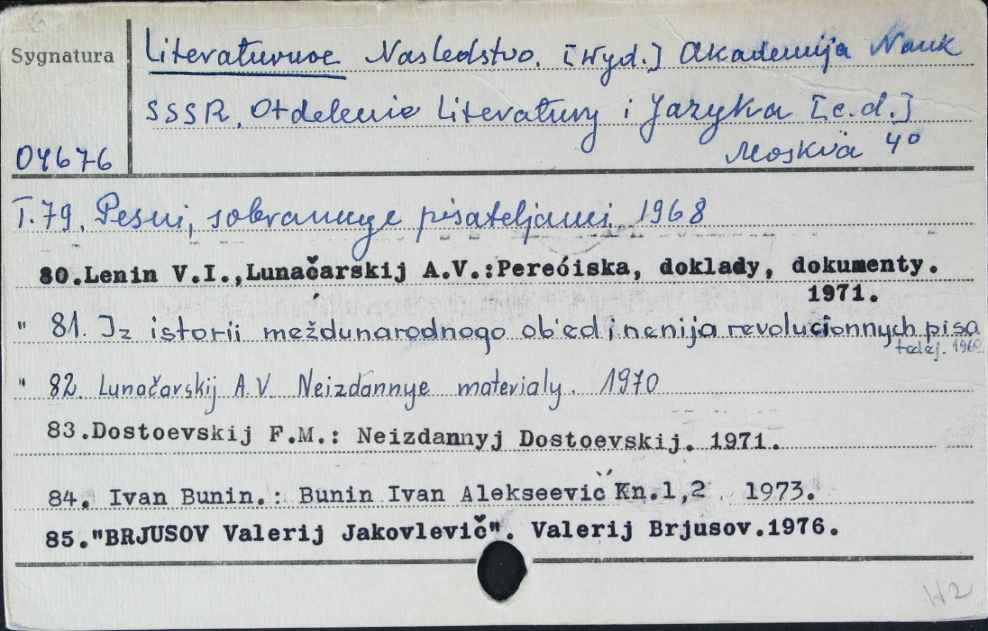 Sygnatura
Literaturnoe Nasledstvo. [Wyd.] Akademija Nauk
SSSR, Otdelenie Literatury i Jazyka [c.d.]
04676
Moskva 4°
T.79. Pesni, sobrannye pisateljami, 1968
80.Lenin V.I.,Lunačarskij A.V.:Pereóiska, doklady, dokumenty.
1971.
" 81. Iz istorii meždunarodnogo ob'edinenija revolucionnych pisa
telej. 1969
" 82 Lunačarskij A.V. Neizdannye materialy. 1970
83.Dostoevskij F.M.: Neizdannyj Dostoevskij. 1971.
84. Ivan Bunin.: Bunin Ivan Alekseevič Kn.1,2 . 1973.
85."BRJUSOV Valerij Jakovlevič". Valerij Brjusov.1976.